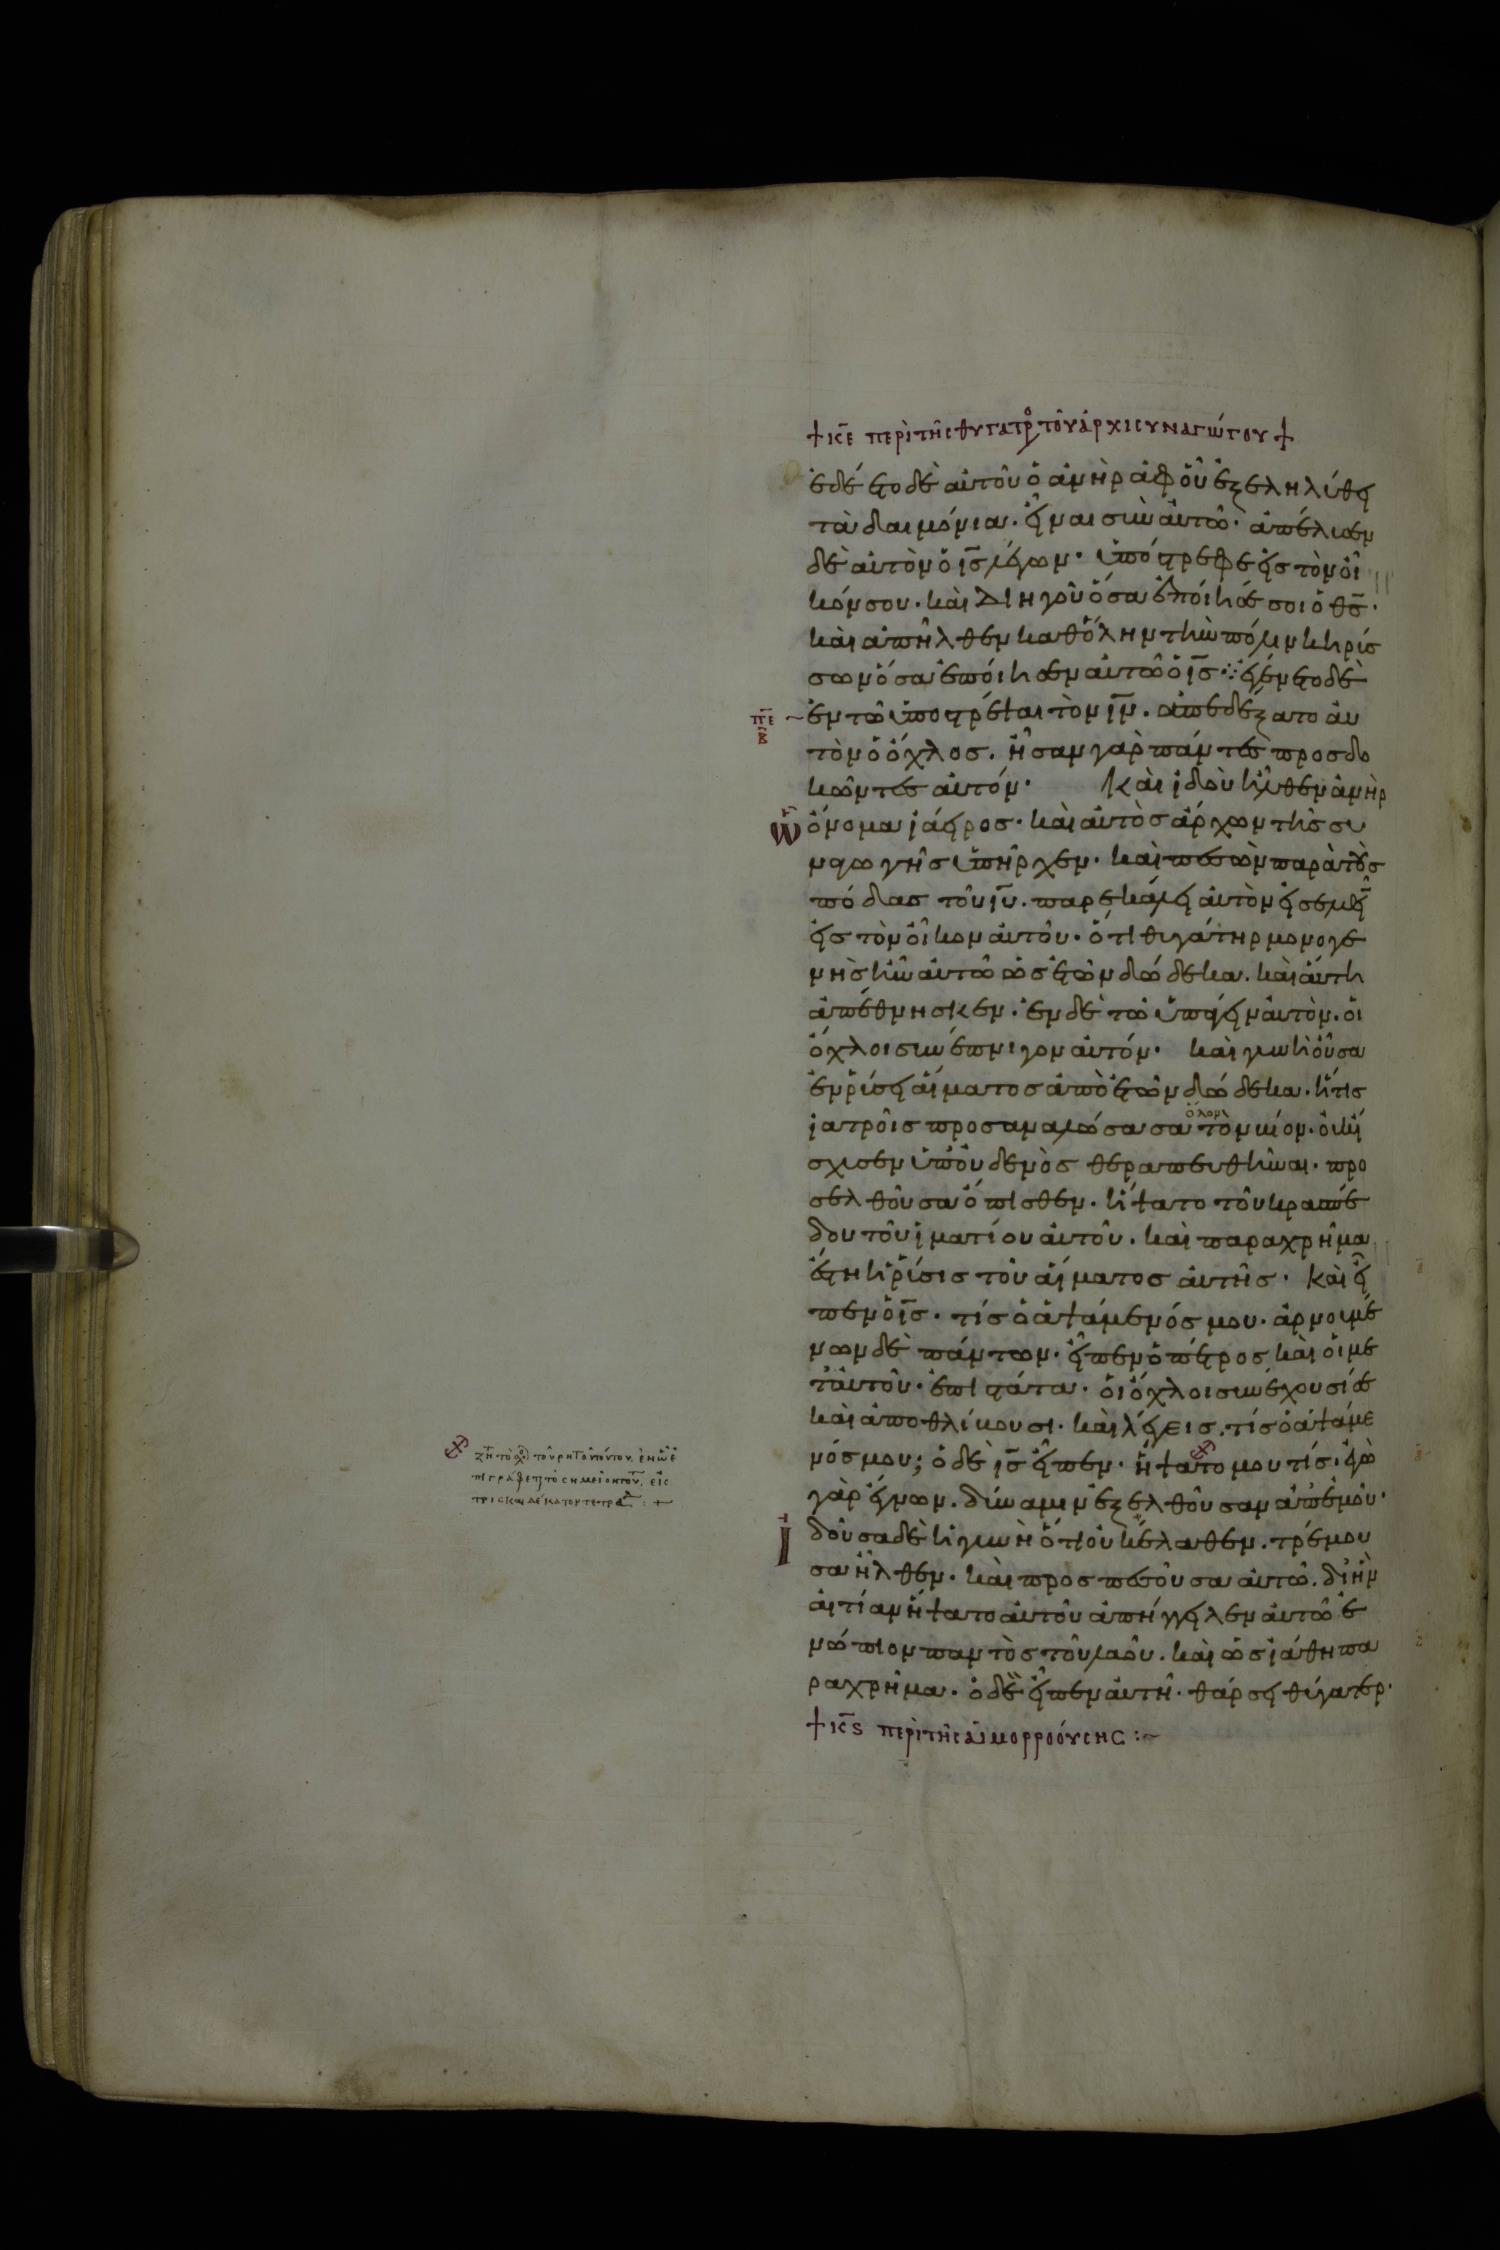 + κε περὶ τῆς θυγατρο τοῦ ἀρχισυναγώγου +
ἐδέετο δὲ αὐτοῦ ὁ ἀνὴρ ἀφ οὗ ἐξεληλύθει
τὰ δαιμόνια· εἶναι σὺν αὐτῶ· ἀπέλυσεν
δὲ αὐτὸν ὁ ις λέγων· ὑπόστρεφε εἰς τὸν οἶ
κόν σου· καὶ διηγοῦ ὅσα ἐποίησέ σοι ὁ θς·
καὶ ἀπῆλθεν καθόλην τὴν πόλιν κηρύσ
σων ὅσα ἐποίησεν αὐτῶ ὁ ις· ἐγένετο δὲ
πε β ἐν τῶ ὑποστρέψαι τὸν ιν. ἀπεδέξατο αὐ
τὸν ὁ ὄχλος. ἦσαν γὰρ πάντες προσδο
κῶντες αὐτόν· Καὶ ἰδοὺ ἦλθεν ἀνὴρ
ὧ ὄνομα ἰάειρος· καὶ αὐτὸς ἄρχων τῆς συ
ναγωγῆς ὑπῆρχεν· καὶ πεσὼν παρὰ τοὺς
πόδας τοῦ ιυ. παρεκάλει αὐτὸν εἰσελθεῖ
εἰς τὸν οἶκον αὐτοῦ· ὅτι θυγάτηρ μονογε
νὴς ἦν αὐτῶ ὡς ἐτῶν δώδεκα. καὶ αὕτη
ἀπέθνησκεν· ἐν δὲ τῶ ὑπάγειν αὐτὸν. οἱ
ὄχλοι συνέπνιγον αὐτόν· καὶ γυνὴ οὖσα
ἐν ῥύσει αἵματος ἀπὸ ἐτῶν δώδεκα. ἥτις
ἰατροῖς προσαναλώσασα ὅλον τὸν βίον. οὐκ ἴ
σχυσεν ὑπ οὐδενὸς θεραπευθῆναι· προ
σελθοῦσα ὄπισθεν. ἥψατο τοῦ κρασπέ
δου τοῦ ἱματίου αὐτοῦ. καὶ παραχρῆμα
ἔστη ἡ ῥύσις τοῦ αἵματος αὐτῆς· Καὶ εἶ
πεν ὁ ις· τίς ὁ ἁψάμενός μου· ἀρνουμέ
νων δὲ πάντων· εἶπεν ὁ πέτρος καὶ οἱ με
τ αὐτοῦ· ἐπιστάτα· οἱ ὄχλοι συνέχουσί σε
καὶ ἀποθλίβουσι· καὶ λέγεις. τίς ὁ ἁψάμε
νός μου; ὁ δὲ ις εἶπεν· ἥψατο μου τίς· ἐγὼ
γὰρ ἔγνων. δύναμιν ἐξελθοῦσαν ἀπ ἐμοῦ·
Ἰδοῦσα δὲ ἡ γυνὴ ὅτι οὐκ ἔλαθεν. τρέμου
σα ἦλθεν· καὶ προσπεσοῦσα αὐτῶ. δι ἣν
αἰτίαν ἥψατο αὐτοῦ ἀπήγγειλεν αὐτῶ ἐ
νώπιον παντὸς τοῦ λαοῦ. καὶ ὡς ἰάθη πα
ραχρῆμα. ὁ δὲ εἶπεν αὐτῆ· θάρσει θύγατερ·
+ κς περὶ τῆς αἱμορροούσης :~
ζη τὸ σχο τοῦ ῥητοῦ τούτου, ἐν ὧ ἐ
πιγράφεται τὸ σημεῖον του, εἰς
τρισκαιδέκατον τετρα : +